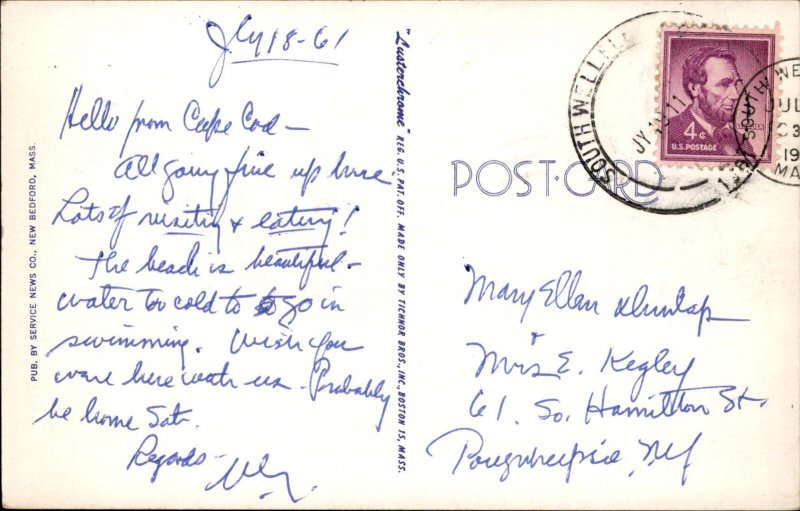 Jly 18-61
Hello from Cape Cod -
All going fine up here
Lots of visiting & eating!
The beach is beautiful -
water too cold to go in
swimming. Wish you
were here with us - Probably
be home Sat.
Regards -
PUB. BY SERVICE NEWS CO., NEW BEDFORD, MASS.
"Lusterchrome" REG. U.S. PAT. OFF. MADE ONLY BY TICHNOR BROS., INC., BOSTON 15, MASS.
POST-CARD
SOUTH WELLFLE
JY 19 11
4¢
U.S. POSTAGE
SOUTH WE
JUL
19
MA
Mary Ellen Dunlap
&
Mrs E. Kegley
61. So. Hamilton St.
Poughkeepsie, NY